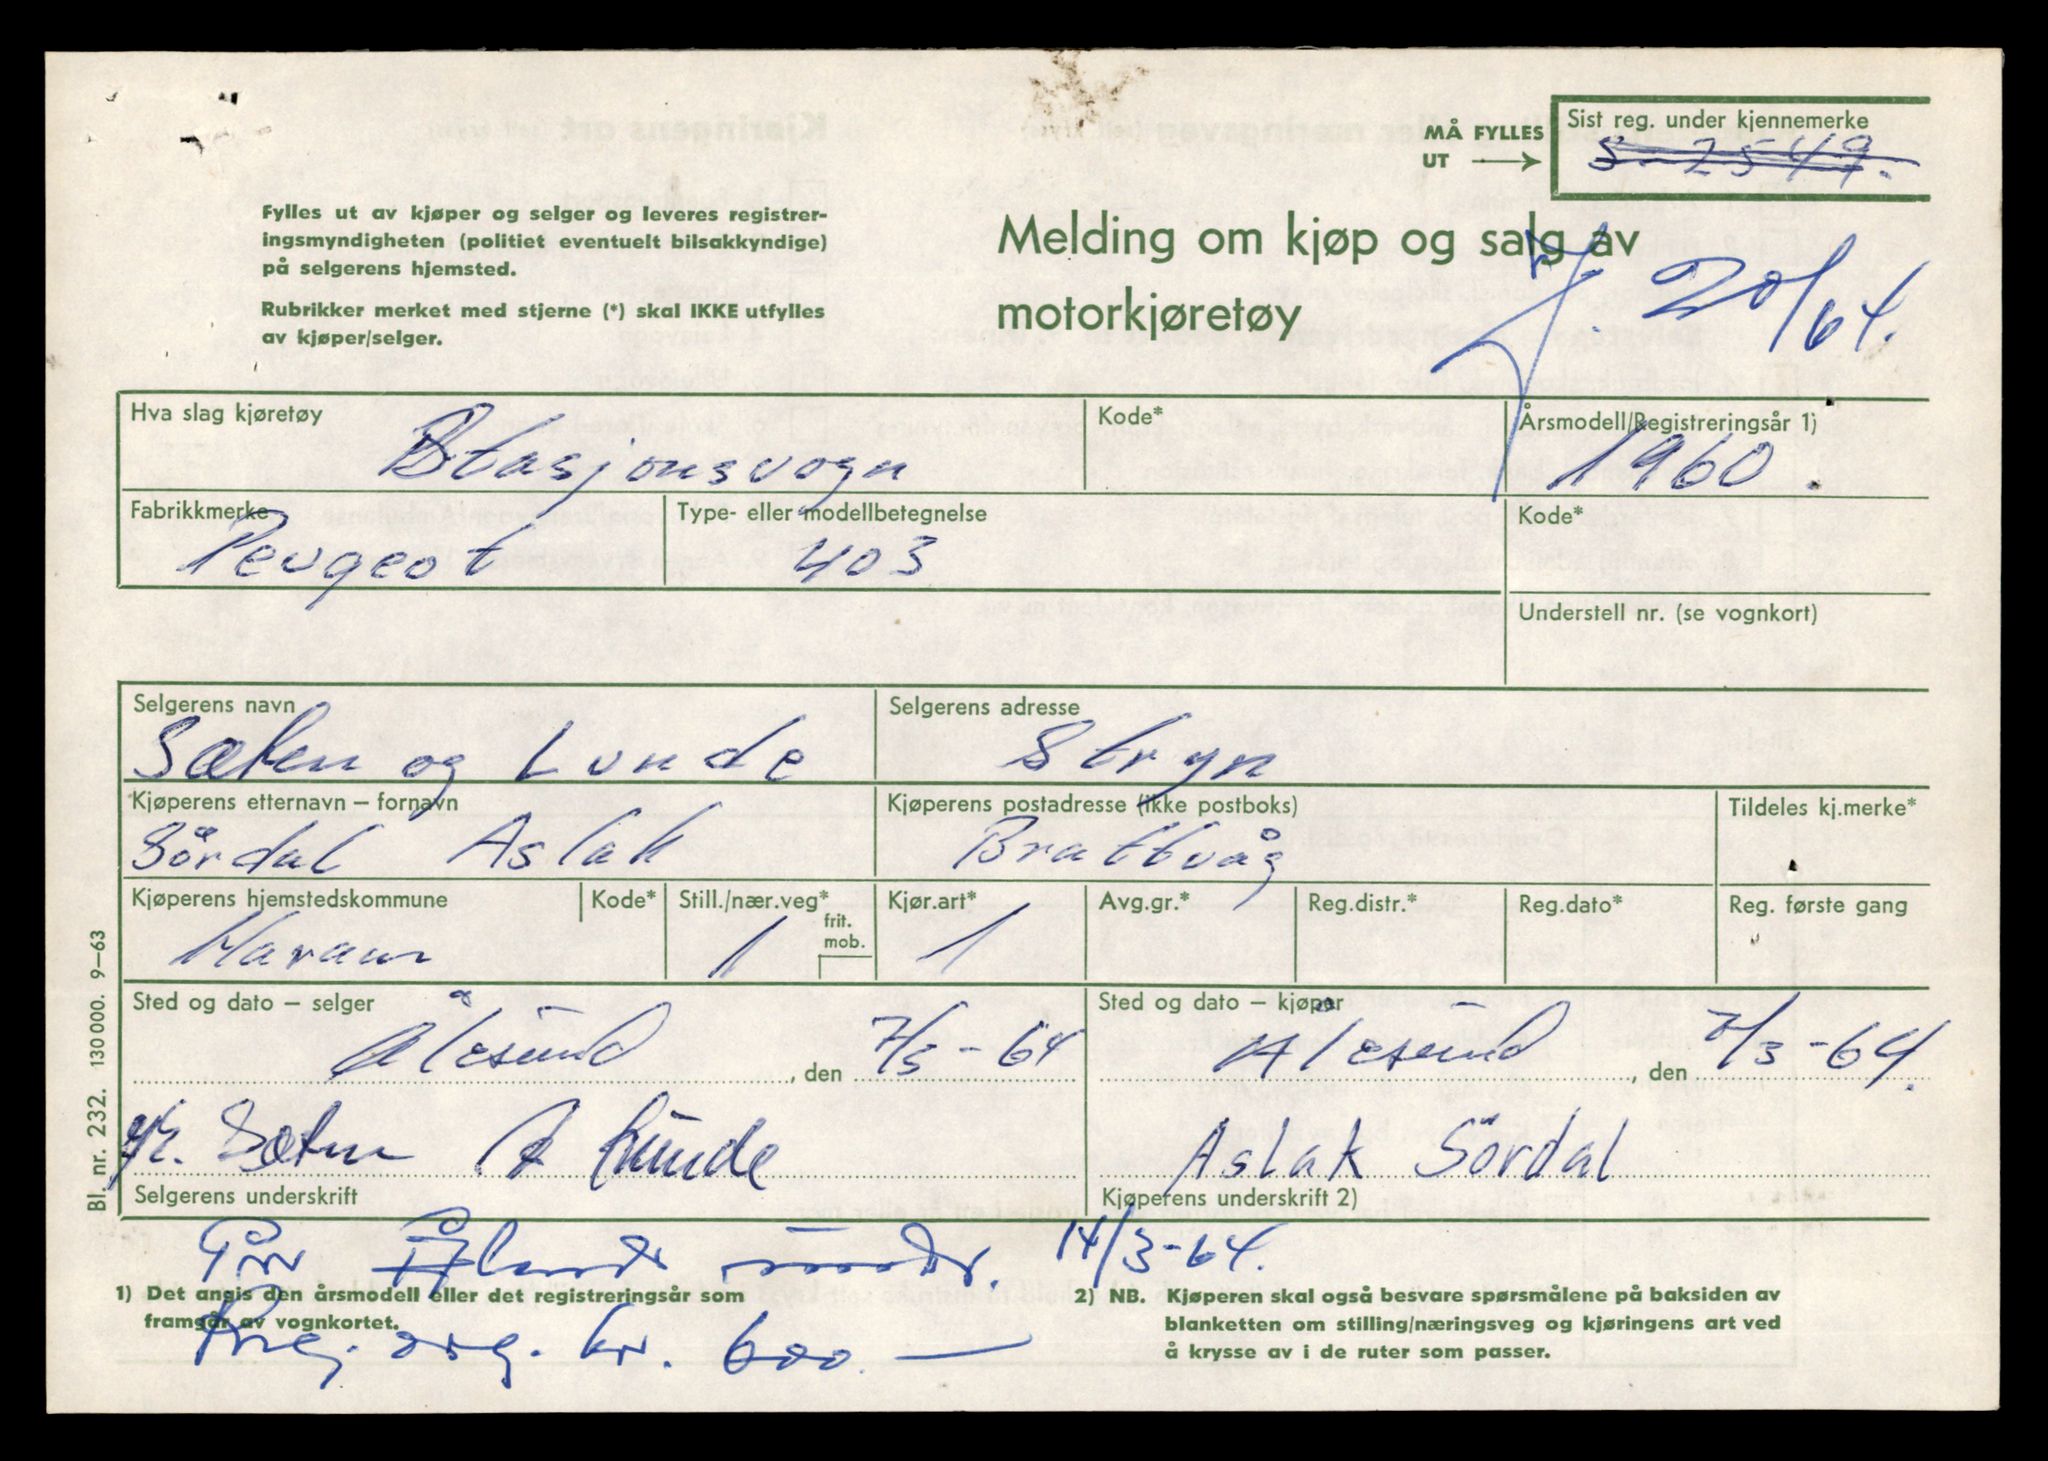 MÅ FYLLES UT
Sist reg. under kjennemerke
S-2549.
Fylles ut av kjøper og selger og leveres registrer-
ingsmyndigheten (politiet eventuelt bilsakkyndige)
på selgerens hjemsted.
Rubrikker merket med stjerne (*) skal IKKE utfylles
av kjøper/selger.
Melding om kjøp og salg av
motorkjøretøy
20/64.
Hva slag kjøretøy
Stasjonsvogn
Kode*
Årsmodell/Registreringsår 1)
1960.
Fabrikkmerke
Peugeot
Type- eller modellbetegnelse
403
Kode*
Understell nr. (se vognkort)
Selgerens navn
Sæten og Lunde
Selgerens adresse
Stryn
Kjøperens etternavn – fornavn
Sördal Aslak
Kjøperens postadresse (ikke postboks)
Brattvåg
Tildeles kj.merke*
Kjøperens hjemstedskommune
Haram
Kode*
Still./nær.veg*
1
frit.
mob.
Kjør.art*
1
Avg.gr.*
Reg.distr.*
Reg.dato*
Reg. første gang
Sted og dato – selger
Ålesund, den 7/3-64
Sted og dato – kjøper
Ålesund, den 7/3-64.
Sæten A Lunde
Selgerens underskrift
Aslak Sördal
Kjøperens underskrift 2)
14/3-64.
1) Det angis den årsmodell eller det registreringsår som
framgår av vognkortet.
org. kr. 600.—
2) NB. Kjøperen skal også besvare spørsmålene på baksiden av
blanketten om stilling/næringsveg og kjøringens art ved
å krysse av i de ruter som passer.
Bl. nr. 232. 130 000. 9–63